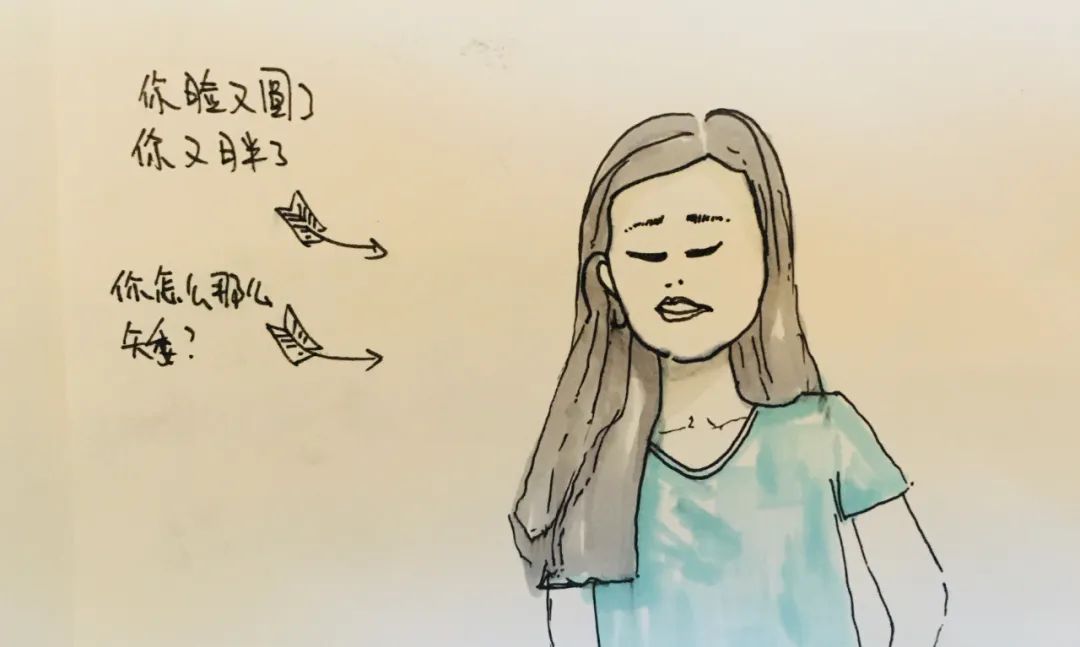 你脸又圆了
你又胖了
你怎么那么
矮?